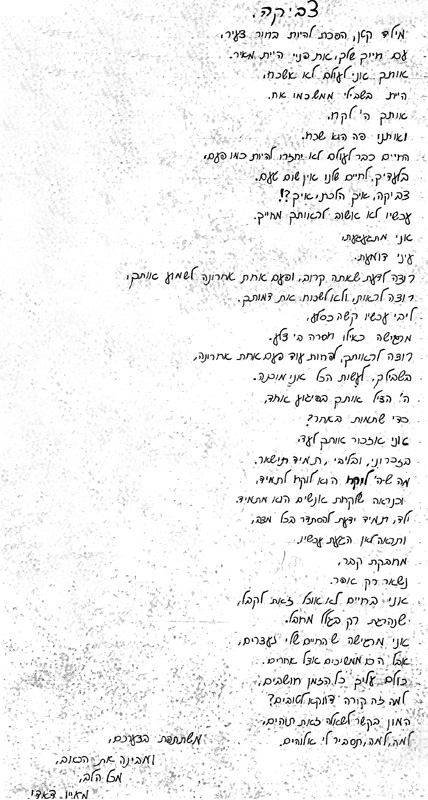 צביקה.
מילד קטן, הפכת להיות בחור צעיר,
עם חיוך שלך, את פניי היית מאיר.
אותך אני לעולם לא אשכח,
היית בשבילי ממש כמו אח.
אותך ה' לקח,
ואותנו פה הוא שכח.
החיים כבר לעולם לא יחזרו להיות כמו פעם,
בלעדיך, לחיים שלנו אין שום טעם.
צביקה, איך הלכת, איך?!
עכשיו לא אשוב לראותך מחייך.
אני מתגעגעת,
עיני דומעת.
רוצה לדעת שאתה קרוב, ופעם אחת אחרונה לשמוע אותך,
רוצה לראות, ולא לשכוח את דמותך.
ליבי עכשיו קשה כסלע,
מרגישה כאילו חסרה בי צלע.
רוצה לראותך, לפחות עוד פעם אחת אחרונה,
בשבילך, לעשות הכל אני מוכנה.
ה' הציל אותך בפיגוע אחד,
כדי שתמות באחר?
אני אזכור אותך לעד,
בזכרוני, ובליבי, תמיד תישאר.
מה שה' לוקח הוא לוקח לתמיד,
וכנראה שלקחת אנשים הוא מתמיד.
ילד, תמיד ידעת להסתדר בכל מצב,
ותראה לאן הגעת עכשיו.
מחבקת קבר,
נשאר רק אפר.
אני בחיים לא אוכל זאת לקבל,
שנהרגת רק בגלל מחבל.
אני מרגישה שהחיים שלי נעצרים,
אבל הם ממשיכים אצל אחרים.
כולם עליך כל הזמן חושבים,
למה זה קורה דווקא לטובים?
המון בקשר לשאלה זאת תוהים,
למה, למה, תסביר לי אלוהים.
משתתפת בצערכם,
ומבינה את הכאב,
מכל הלב,